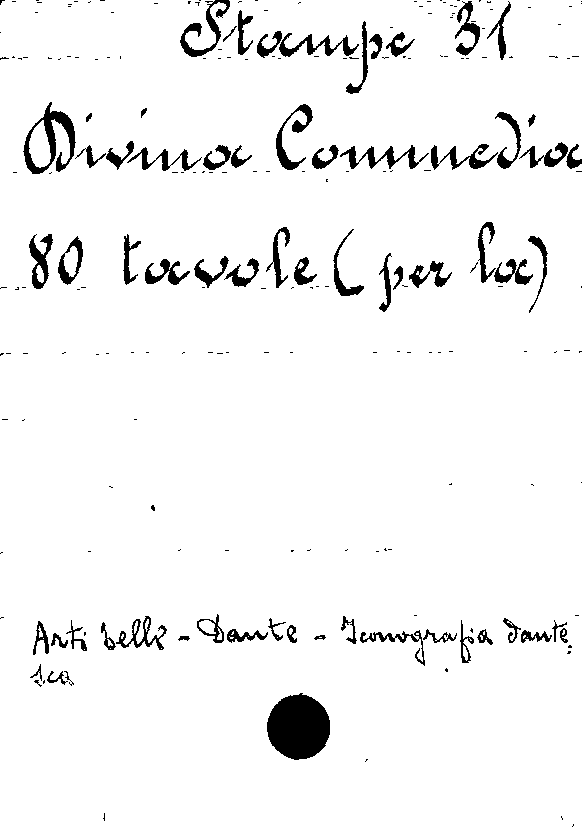 Stampe 31
Divina Commedia
80 tavole (per la)
Arti belle - Dante - Iconografia dante
sca